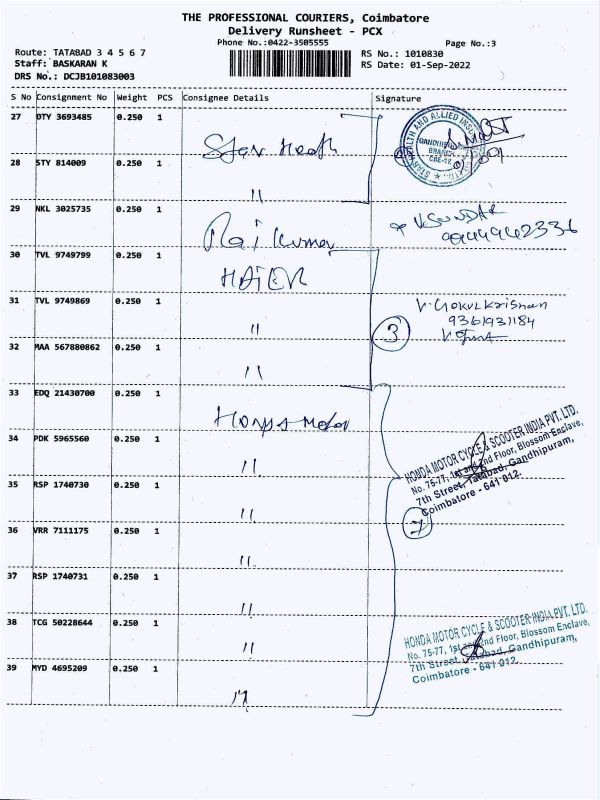 THE PROFESSIONAL COURIERS, Coimbatore
Delivery Runsheet - PCX
Phone No.:0422-3505555
Page No.:3
Route: TATABAD 3 4 5 6 7
RS No.: 1010830
Staff: BASKARAN K
RS Date: 01-Sep-2022
DRS No.: DCJB101083003
S No Consignment No Weight PCS Consignee Details Signature
27 OTY 3693485 0.250 1 Star Health
28 STY 814009 0.250 1 "
29 NKL 3025735 0.250 1 Raj Kumar V. SUNDAR
30 TVL 9749799 0.250 1 HAIER
31 TVL 9749869 0.250 1 " V. Gokul Krishnan
9361931184
3
32 MAA 567880862 0.250 1 "
33 EDQ 21430700 0.250 1 Honda Motor
34 PDK 5965560 0.250 1 "
HONDA MOTOR CYCLE & SCOOTER INDIA PVT. LTD.
No. 75-77, 1st and 2nd Floor, Blossom Enclave,
7th Street, Tatabad, Gandhipuram,
Coimbatore - 641 012.
35 RSP 1740730 0.250 1 "
7
36 VRR 7111175 0.250 1 "
37 RSP 1740731 0.250 1 "
38 TCG 50228644 0.250 1 "
HONDA MOTOR CYCLE & SCOOTER INDIA PVT. LTD.
No. 75-77, 1st and 2nd Floor, Blossom Enclave,
7th Street, Tatabad, Gandhipuram,
Coimbatore - 641 012.
39 MYD 4695209 0.250 1 "